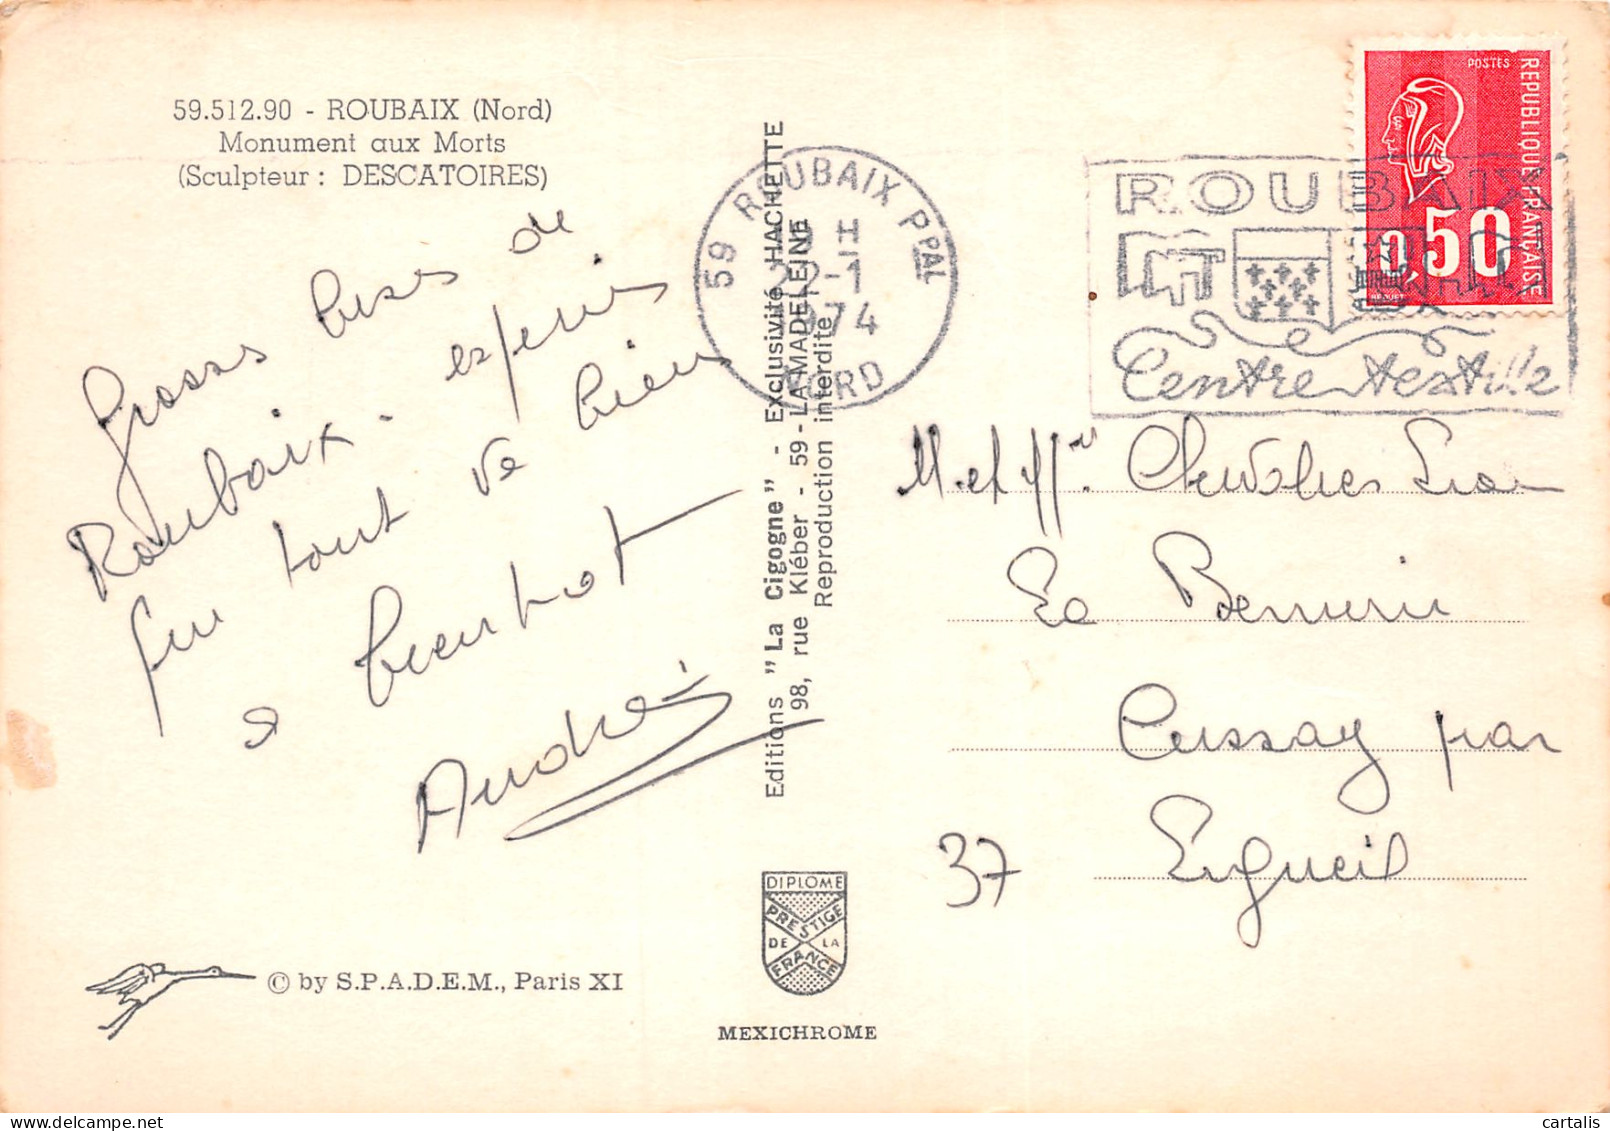 59.512.90 - ROUBAIX (Nord)
Monument aux Morts
(Sculpteur : DESCATOIRES)
Grosses bises de
Roubaix - espérons
que tout va bien
à bientôt
André
Editions "La Cigogne" - Exclusivité HACHETTE
98, rue Kléber - 59 - LA MADELEINE
Reproduction interdite
59 ROUBAIX PPAL
H
22-1
1974
NORD
ROUBAIX
Centre textile
POSTES
REPUBLIQUE FRANÇAISE
0,50
BEQUET
M. et Mme Chevalier
La
Cussay par
37 Ligueil
DIPLOME
PRESTIGE
DE LA
FRANCE
© by S.P.A.D.E.M., Paris XI
MEXICHROME
cartalis